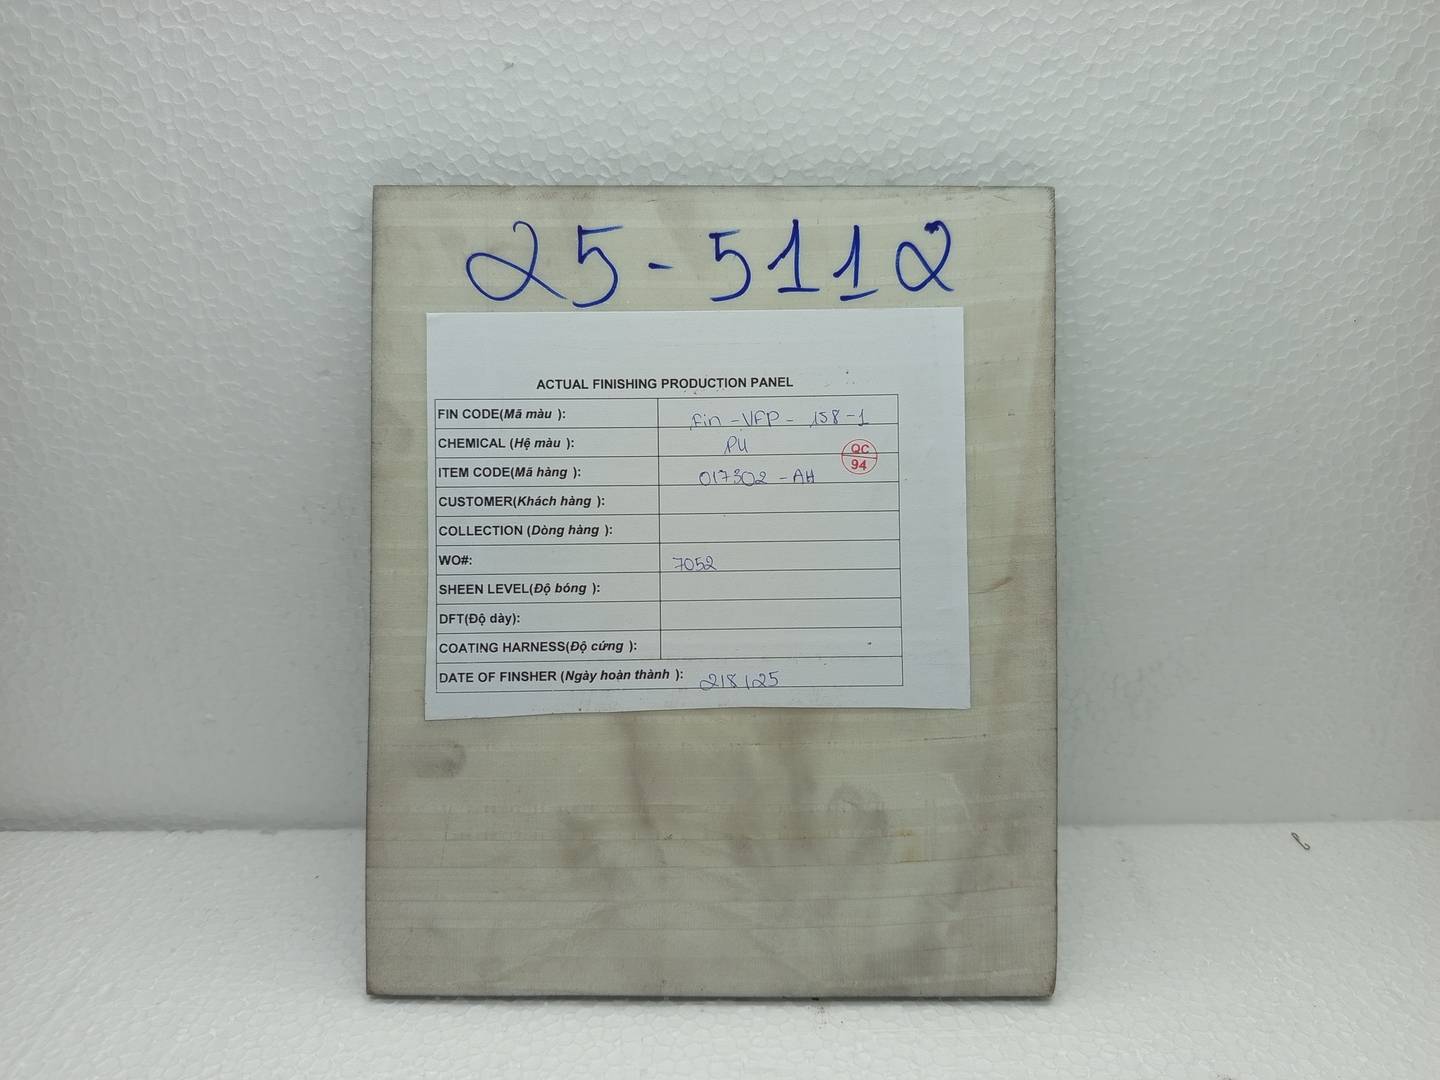 25-5112
ACTUAL FINISHING PRODUCTION PANEL
FIN CODE(Mã màu ): Fin-VFP-158-1
CHEMICAL (Hệ màu ): PU
QC
94
ITEM CODE(Mã hàng ): 017302-AH
CUSTOMER(Khách hàng ):
COLLECTION (Dòng hàng ):
WO#: 7052
SHEEN LEVEL(Độ bóng ):
DFT(Độ dày):
COATING HARNESS(Độ cứng ):
DATE OF FINSHER (Ngày hoàn thành ): 2/8/25